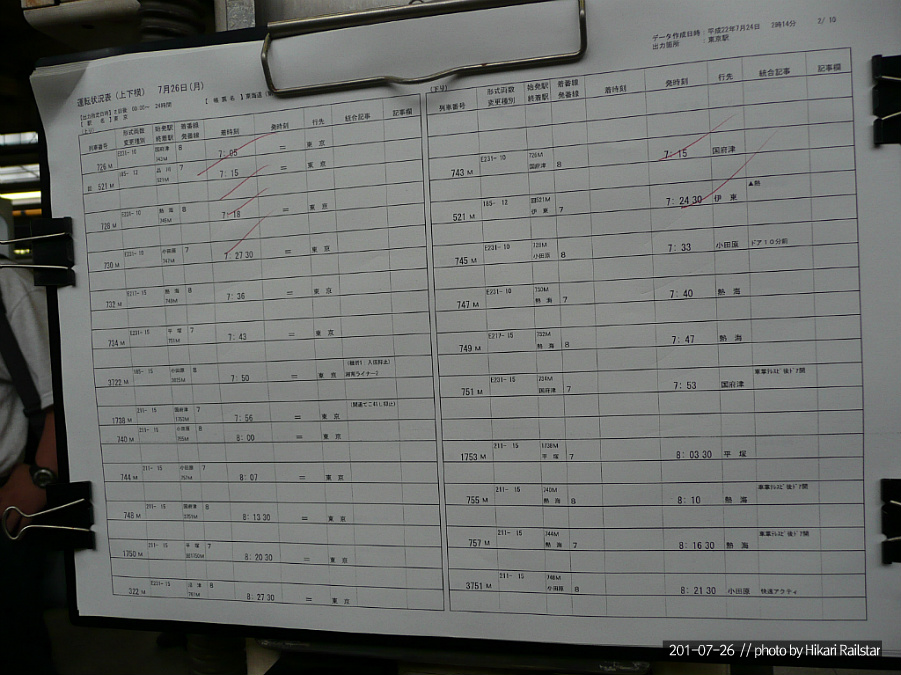 データ作成日時：平成22年7月24日 3時14分 2/10
出力箇所：東京駅
運転状況表(上下横) 7月26日(月)
列車番号 形式両数 変更種別 始発駅 終着駅 着番線 発番線 着時刻 発時刻 行先 総合記事 記事欄
726M E231-10 国府津 8 7:05 = 東京
521M 185-12 品川 7 7:15 = 東京
728M E231-10 熱海 8 7:18 = 東京
730M E231-10 小田原 7 7:27 30 = 東京
732M E217-15 熱海 8 7:36 = 東京
734M E231-15 平塚 7 7:43 = 東京
3722M 185-15 小田原 8 7:50 = 東京 湘南ライナー2
1738M 211-15 国府津 7 7:56 = 東京
740M 211-15 小田原 8 8:00 = 東京
744M 211-15 小田原 7 8:07 = 東京
748M 211-15 国府津 8 8:13 30 = 東京
1750M 211-15 平塚 7 8:20 30 = 東京
322M E231-15 沼津 8 8:27 30 = 東京
列車番号 形式両数 変更種別 始発駅 終着駅 着番線 発番線 着時刻 発時刻 行先 総合記事 記事欄
743M E231-10 726M 国府津 8 7:15 国府津
521M 185-12 回521M 伊東 7 7:24 30 伊東
745M E231-10 728M 小田原 8 7:33 小田原 ドア10分前
747M E231-10 730M 熱海 7 7:40 熱海
749M E217-15 732M 熱海 8 7:47 熱海
751M E231-15 734M 国府津 7 7:53 国府津
1753M 211-15 1738M 平塚 7 8:03 30 平塚
755M 211-15 740M 熱海 8 8:10 熱海
757M 211-15 744M 熱海 7 8:16 30 熱海
3751M 211-15 748M 小田原 8 8:21 30 小田原 快速アクティ
201-07-26 // photo by Hikari Railstar